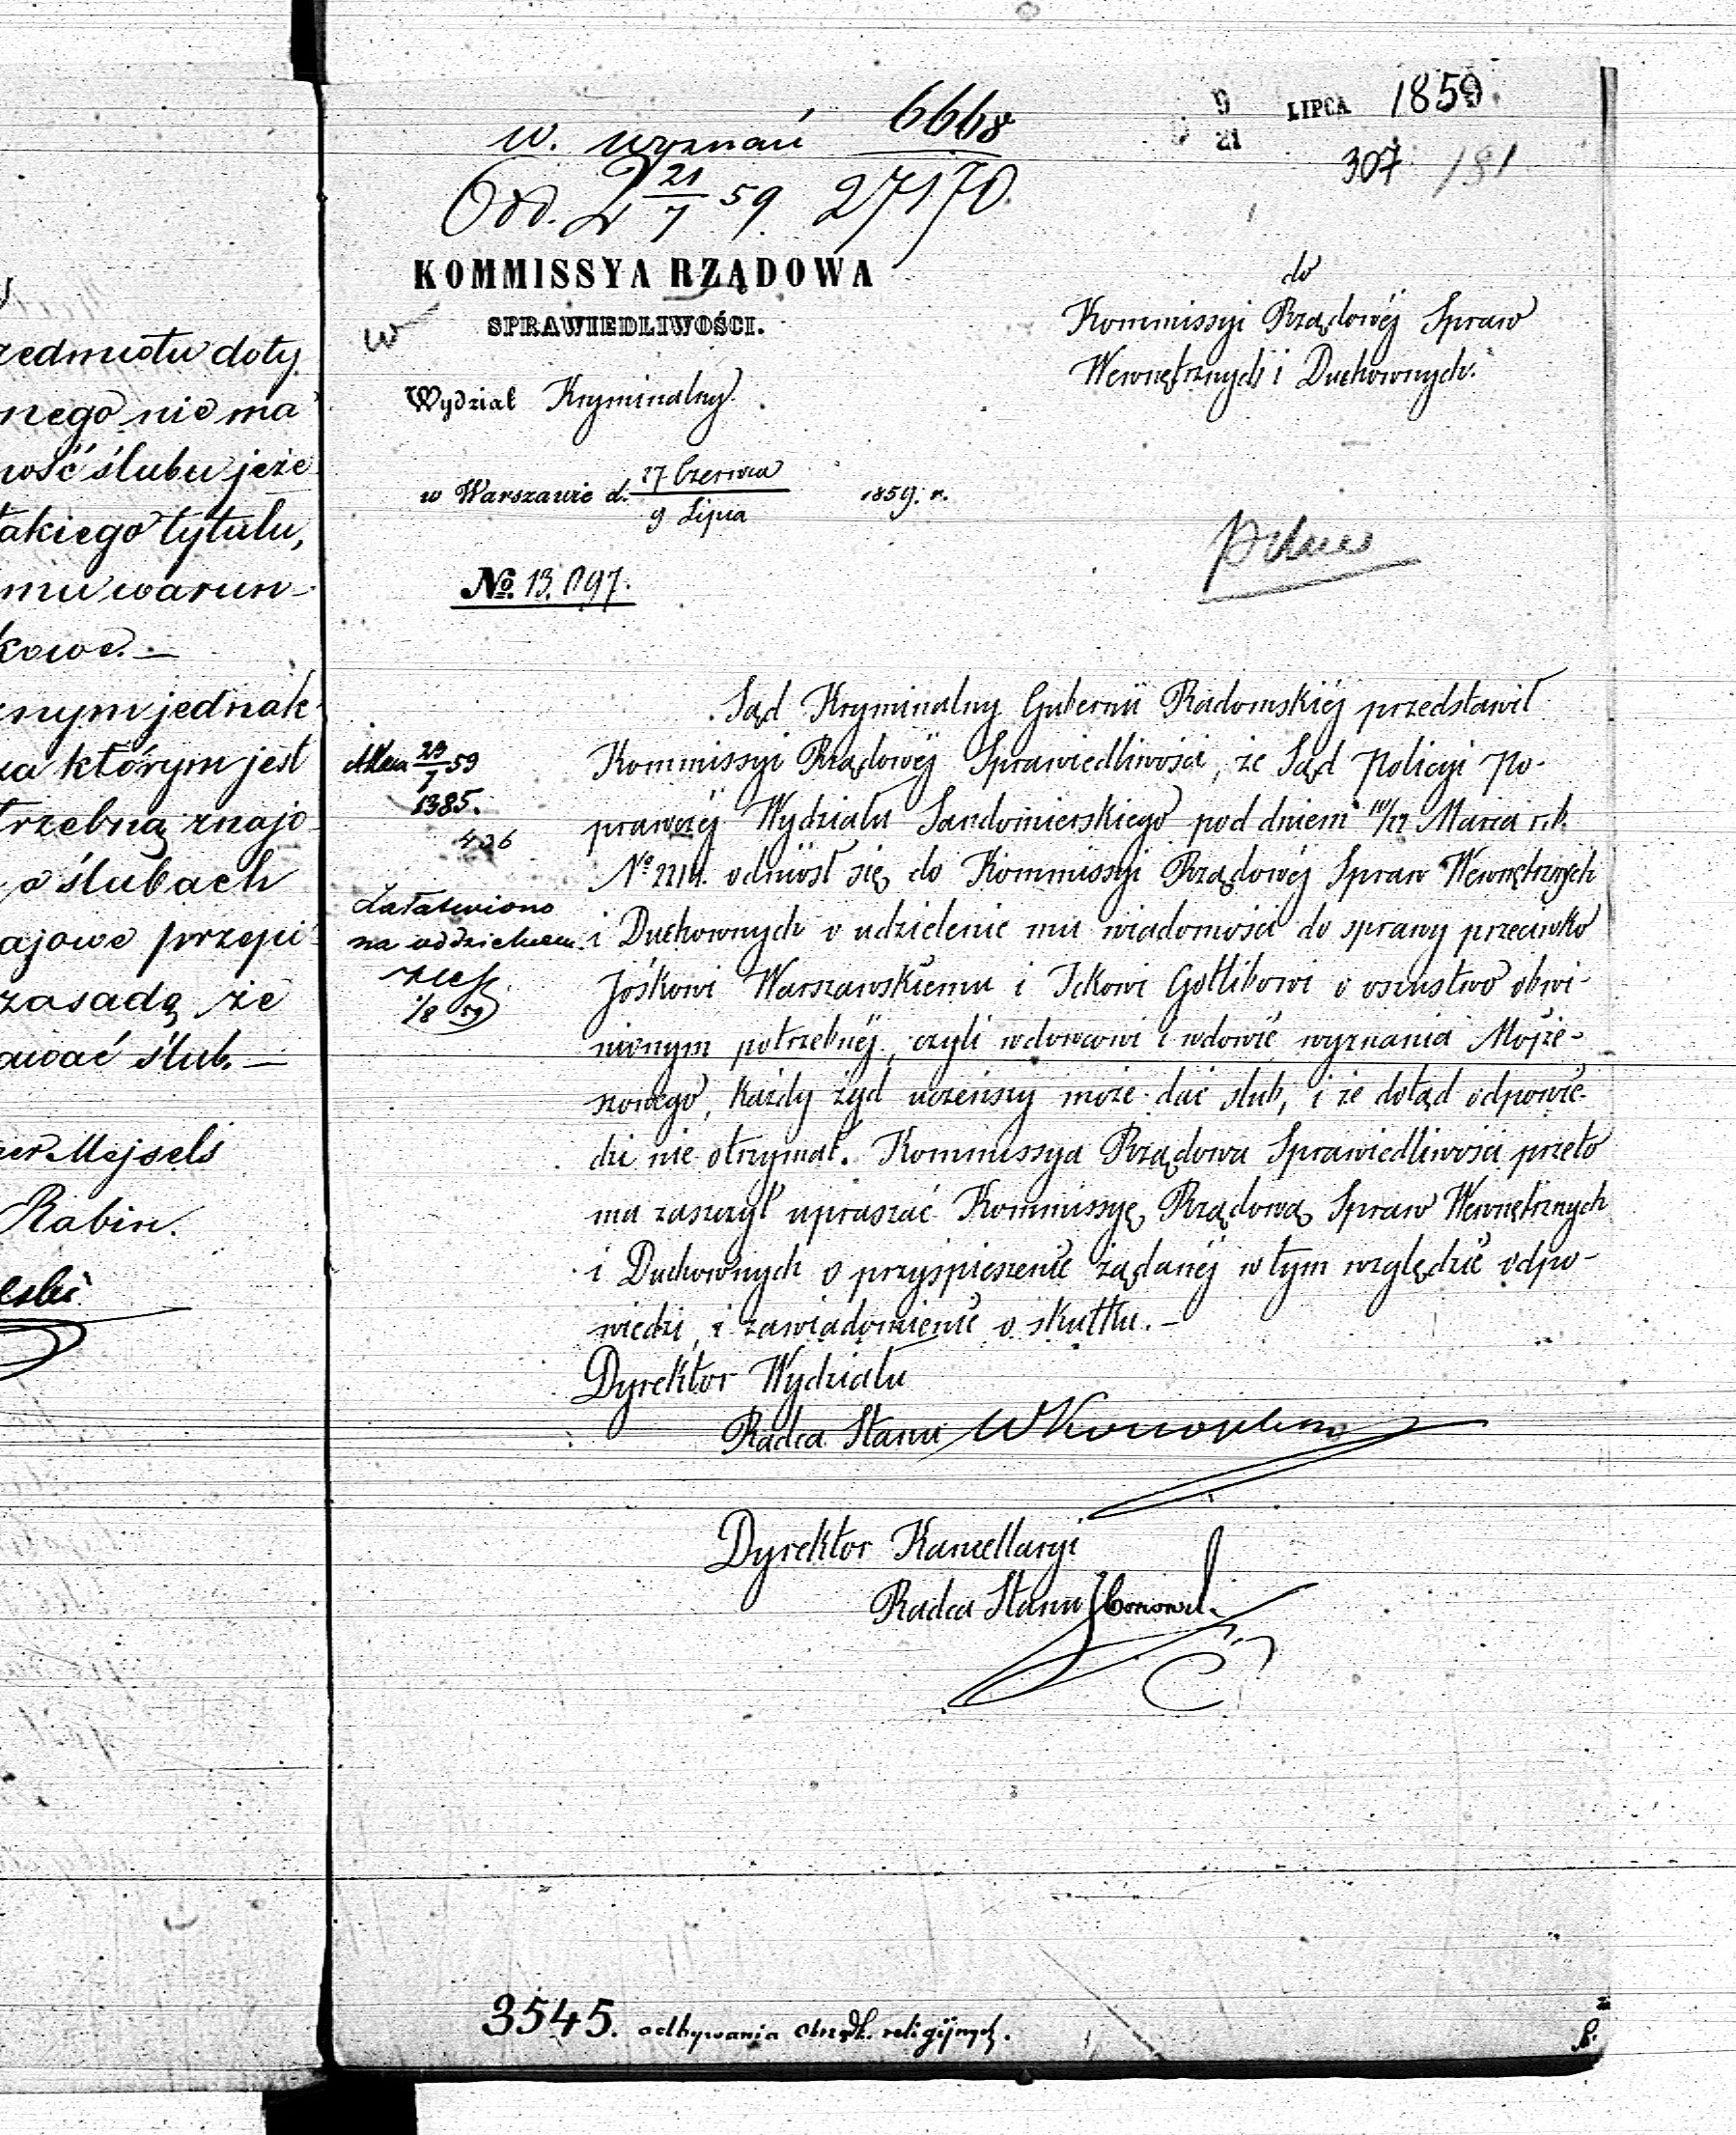 zedmiotu doty
nego nie ma
ność ślubu jeże
takiego tytułu,
mu warun-
kowe. —
nym jednak
na którym jest
trzebną znajo
o ślubach
ajowe przepi
zasadę, że
awać ślub. —
Mejsels
Rabin.
w. wyznań 6668
21/7 59. 27170.
9/21 LIPCA 1859
307 181
KOMMISSYA RZĄDOWA
SPRAWIEDLIWOŚCI.
w
Wydział Kryminalny.
w Warszawie d. 27 Czerwca / 9 Lipca 1859. r.
№ 13.097.
do
Kommissyi Rządowéj Spraw
Wewnętrznych i Duchownych.
Sąd Kryminalny Gubernii Radomskiéj przedstawił
Kommissyi Rządowéj Sprawiedliwości, że Sąd Policyi Po-
prawczéj Wydziału Sandomierskiego pod dniem 10/22 Marca r. b.
odniósł się do Kommissyi Rządowéj Spraw Wewnętrznych
i Duchownych o udzielenie mu wiadomości do sprawy przeciwko
Jóśkowi Warszawskiemu i Ickowi Gotlibowi o oszustwo obwi-
nionym potrzebnéj, czyli wdowcowi i wdowie wyznania Mojże-
szowego, każdy żyd uczeńszy może dać ślub, i że dotąd odpowie-
dzi nie otrzymał. Kommissya Rządowa Sprawiedliwości przeto
ma zaszczyt upraszać Kommissyę Rządową Spraw Wewnętrznych
i Duchownych o przyspieszenie żądanéj w tym względzie odpo-
wiedzi, i zawiadomienie o skutku. —
23/7 59
1385.
436
Załatwiono
na oddzielnem
1/8 59
Dyrektor Wydziału
Radca Stanu
Dyrektor Kancellaryi
Radca Stanu
3545. odbywania obrządk. religijnych.